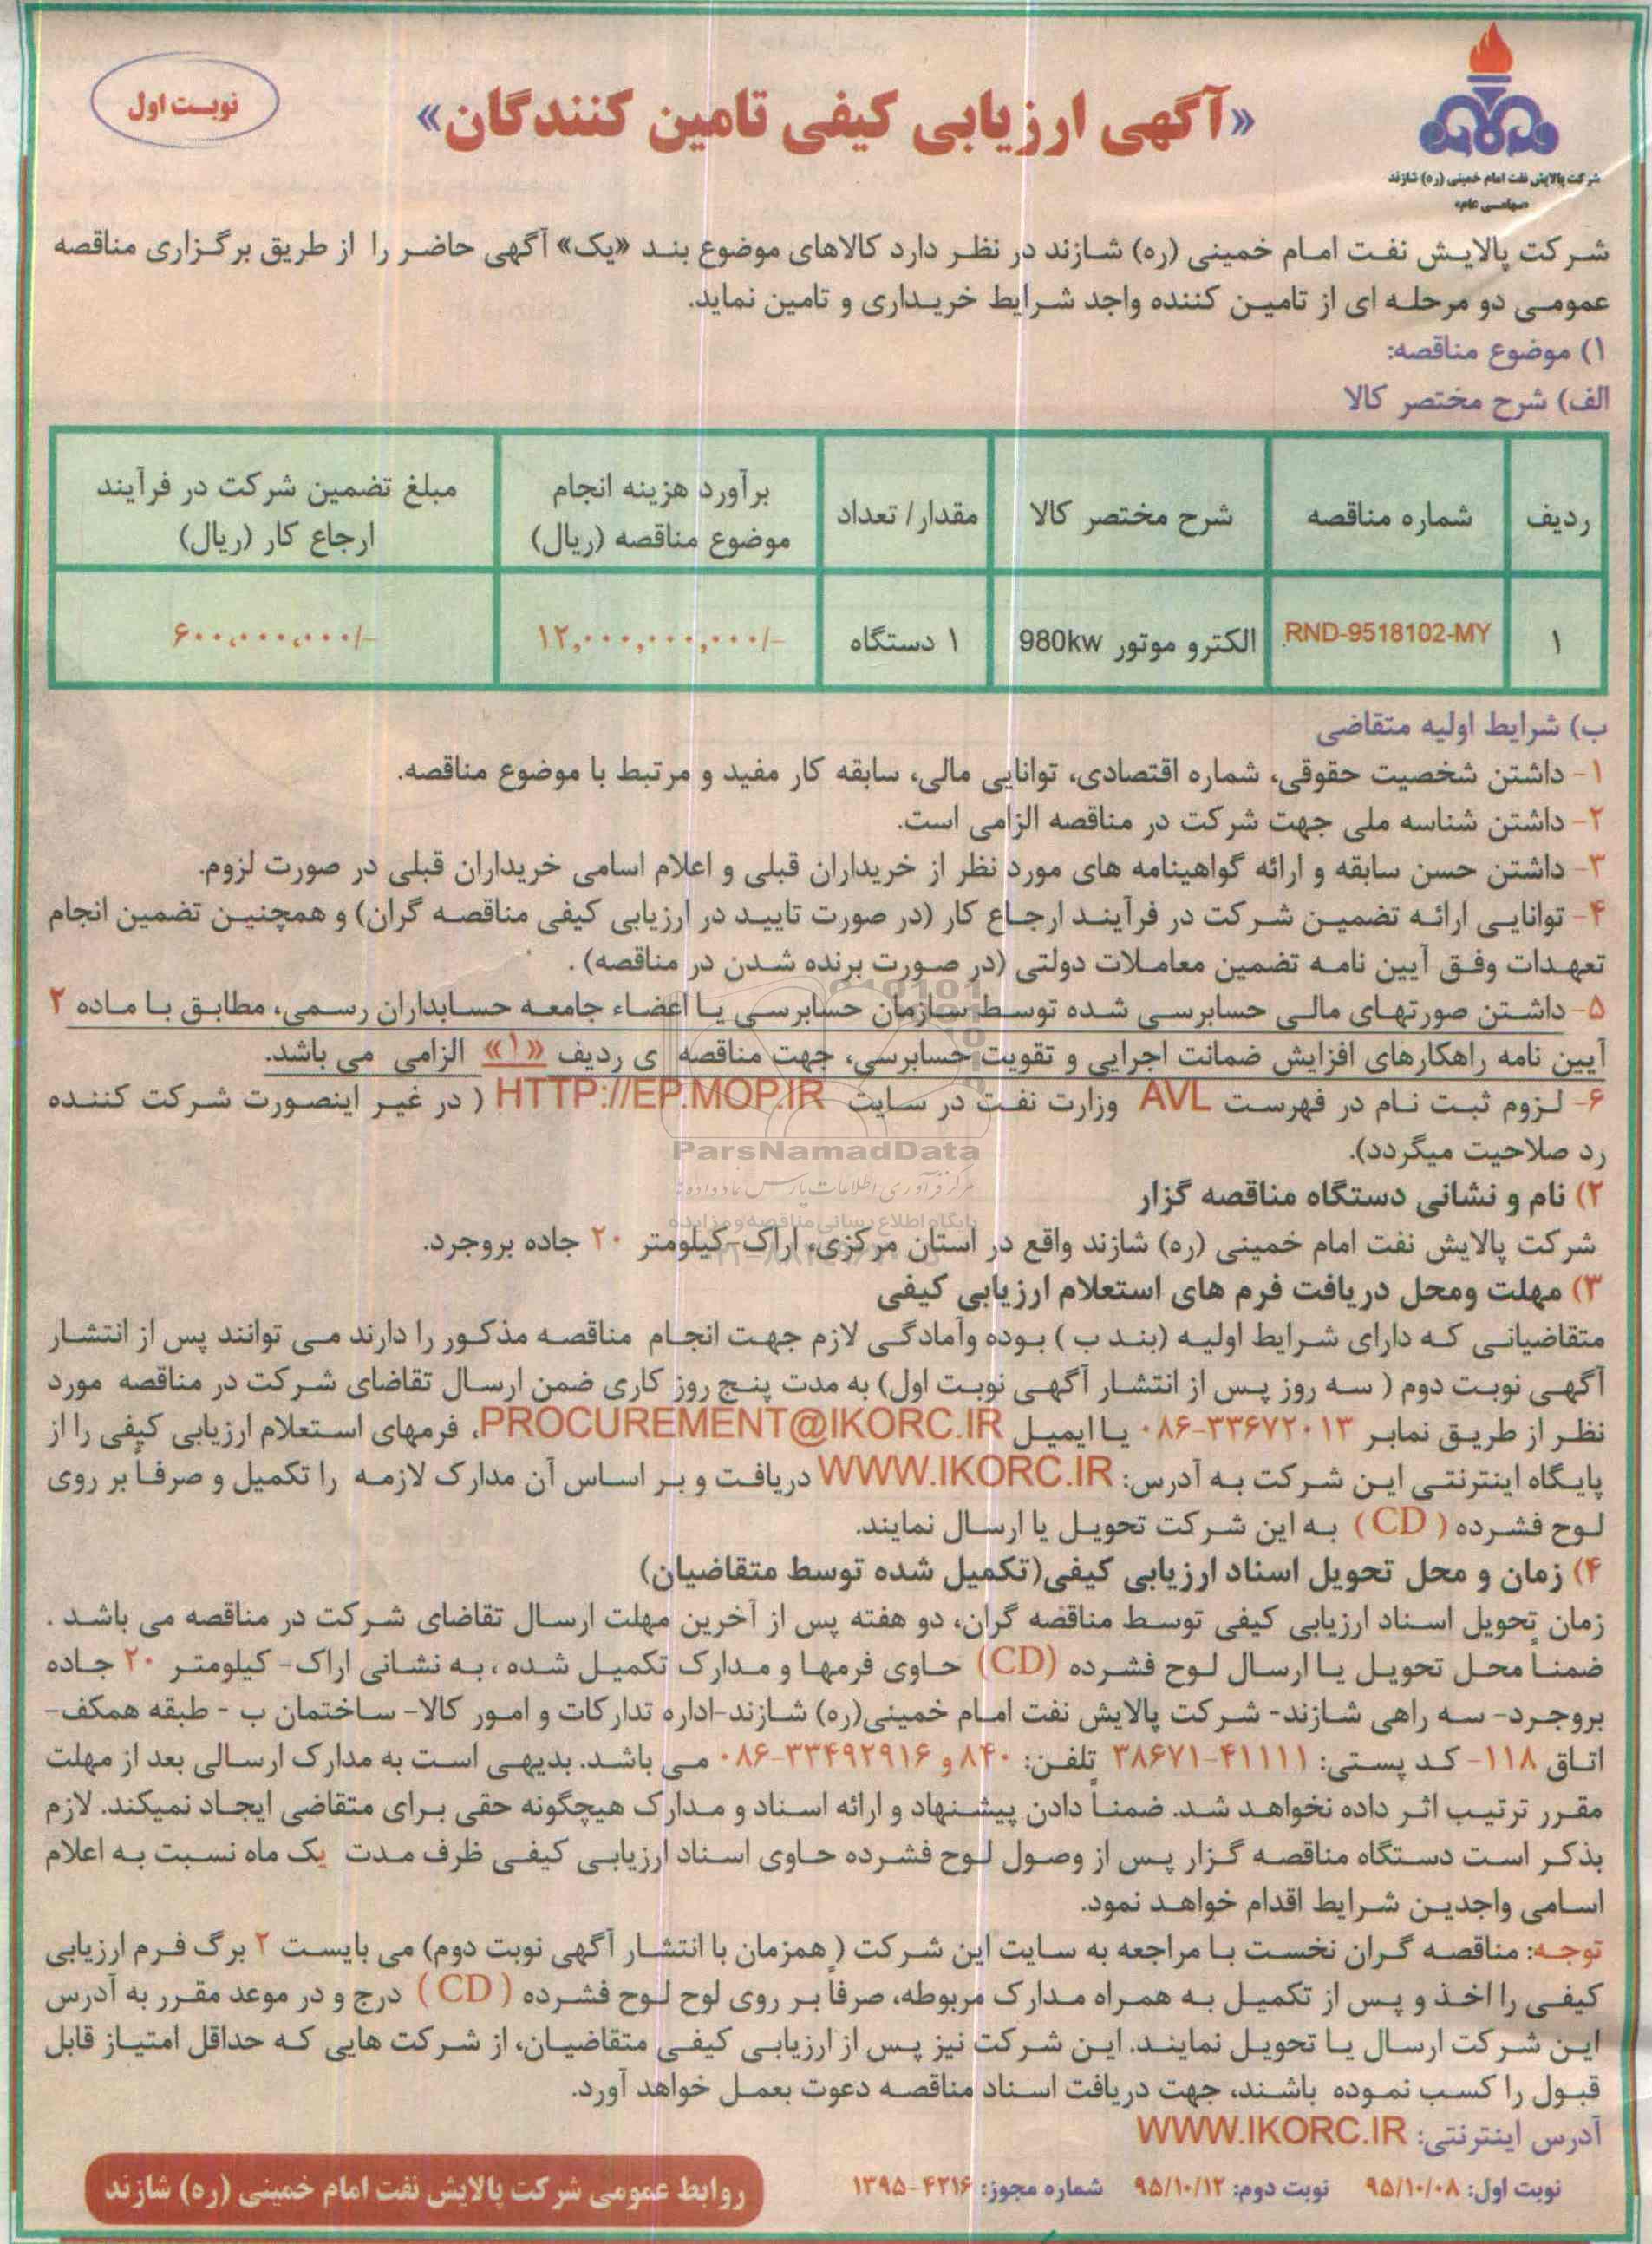 «آگهی ارزیابی کیفی تامین کنندگان»
نوبت اول
شرکت پالایش نفت امام خمینی (ره) شازند
«سهامی عام»
شرکت پالایش نفت امام خمینی (ره) شازند در نظر دارد کالاهای موضوع بند «یک» آگهی حاضر را از طریق برگزاری مناقصه
عمومی دو مرحله ای از تامین کننده واجد شرایط خریداری و تامین نماید.
۱) موضوع مناقصه:
الف) شرح مختصر کالا
ردیف | شماره مناقصه | شرح مختصر کالا | مقدار/ تعداد | برآورد هزینه انجام موضوع مناقصه (ریال) | مبلغ تضمین شرکت در فرآیند ارجاع کار (ریال)
۱ | RND-9518102-MY | الکترو موتور 980kw | ۱ دستگاه | ۱۲,۰۰۰,۰۰۰,۰۰۰/- | ۶۰۰,۰۰۰,۰۰۰/-
ب) شرایط اولیه متقاضی
۱- داشتن شخصیت حقوقی، شماره اقتصادی، توانایی مالی، سابقه کار مفید و مرتبط با موضوع مناقصه.
۲- داشتن شناسه ملی جهت شرکت در مناقصه الزامی است.
۳- داشتن حسن سابقه و ارائه گواهینامه های مورد نظر از خریداران قبلی و اعلام اسامی خریداران قبلی در صورت لزوم.
۴- توانایی ارائه تضمین شرکت در فرآیند ارجاع کار (در صورت تایید در ارزیابی کیفی مناقصه گران) و همچنین تضمین انجام
تعهدات وفق آیین نامه تضمین معاملات دولتی (در صورت برنده شدن در مناقصه) .
۵- داشتن صورتهای مالی حسابرسی شده توسط سازمان حسابرسی یا اعضاء جامعه حسابداران رسمی، مطابق با ماده ۲
آیین نامه راهکارهای افزایش ضمانت اجرایی و تقویت حسابرسی، جهت مناقصه ی ردیف «۱» الزامی می باشد.
۶- لزوم ثبت نام در فهرست AVL وزارت نفت در سایت HTTP://EP.MOP.IR ( در غیر اینصورت شرکت کننده
رد صلاحیت میگردد).
ParsNamadData
۲) نام و نشانی دستگاه مناقصه گزار
پایگاه اطلاع رسانی مناقصه و مزایده
شرکت پالایش نفت امام خمینی (ره) شازند واقع در استان مرکزی، اراک-کیلومتر ۲۰ جاده بروجرد.
۳) مهلت ومحل دریافت فرم های استعلام ارزیابی کیفی
متقاضیانی که دارای شرایط اولیه (بند ب ) بوده وآمادگی لازم جهت انجام مناقصه مذکور را دارند می توانند پس از انتشار
آگهی نوبت دوم ( سه روز پس از انتشار آگهی نوبت اول) به مدت پنج روز کاری ضمن ارسال تقاضای شرکت در مناقصه مورد
نظر از طریق نمابر ۳۳۶۷۲۰۱۳-۰۸۶ یا ایمیل PROCUREMENT@IKORC.IR، فرمهای استعلام ارزیابی کیفی را از
پایگاه اینترنتی این شرکت به آدرس: WWW.IKORC.IR دریافت و بر اساس آن مدارک لازمه را تکمیل و صرفاً بر روی
لوح فشرده ( CD ) به این شرکت تحویل یا ارسال نمایند.
۴) زمان و محل تحویل اسناد ارزیابی کیفی(تکمیل شده توسط متقاضیان)
زمان تحویل اسناد ارزیابی کیفی توسط مناقصه گران، دو هفته پس از آخرین مهلت ارسال تقاضای شرکت در مناقصه می باشد .
ضمناً محل تحویل یا ارسال لوح فشرده (CD) حاوی فرمها و مدارک تکمیل شده ، به نشانی اراک- کیلومتر ۲۰ جاده
بروجرد- سه راهی شازند- شرکت پالایش نفت امام خمینی(ره) شازند-اداره تدارکات و امور کالا- ساختمان ب - طبقه همکف-
اتاق ۱۱۸- کد پستی: ۴۱۱۱۱-۳۸۶۷۱ تلفن: ۸۴۰ و ۳۳۴۹۲۹۱۶-۰۸۶ می باشد. بدیهی است به مدارک ارسالی بعد از مهلت
مقرر ترتیب اثر داده نخواهد شد. ضمناً دادن پیشنهاد و ارائه اسناد و مدارک هیچگونه حقی برای متقاضی ایجاد نمیکند. لازم
بذکر است دستگاه مناقصه گزار پس از وصول لوح فشرده حاوی اسناد ارزیابی کیفی ظرف مدت یک ماه نسبت به اعلام
اسامی واجدین شرایط اقدام خواهد نمود.
توجه: مناقصه گران نخست با مراجعه به سایت این شرکت ( همزمان با انتشار آگهی نوبت دوم) می بایست ۲ برگ فرم ارزیابی
کیفی را اخذ و پس از تکمیل به همراه مدارک مربوطه، صرفاً بر روی لوح لوح فشرده ( CD ) درج و در موعد مقرر به آدرس
این شرکت ارسال یا تحویل نمایند. این شرکت نیز پس از ارزیابی کیفی متقاضیان، از شرکت هایی که حداقل امتیاز قابل
قبول را کسب نموده باشند، جهت دریافت اسناد مناقصه دعوت بعمل خواهد آورد.
آدرس اینترنتی: WWW.IKORC.IR
نوبت اول: ۹۵/۱۰/۰۸ نوبت دوم: ۹۵/۱۰/۱۲ شماره مجوز: ۴۲۱۶-۱۳۹۵
روابط عمومی شرکت پالایش نفت امام خمینی (ره) شازند